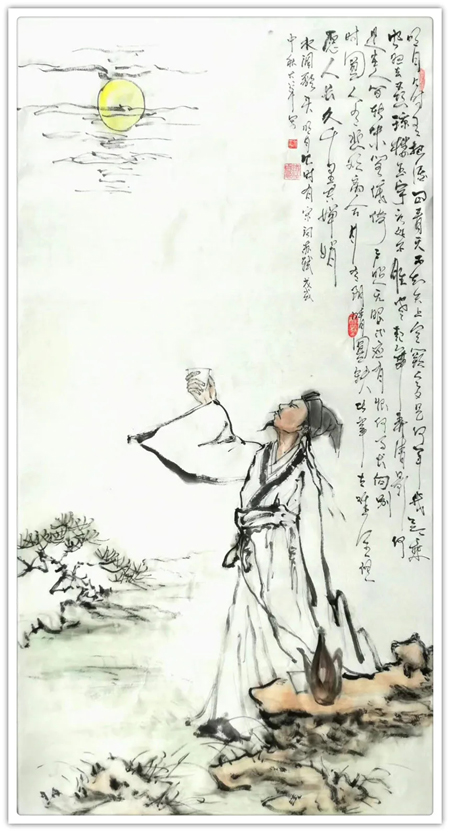 明月几时有把酒问青天不知天上宫阙今夕是何年我欲乘
风归去又恐琼楼玉宇高处不胜寒起舞弄清影何
似在人间转朱阁低绮户照无眠不应有恨何事长向别
时圆人有悲欢离合月有阴晴圆缺此事古难全但
愿人长久千里共婵娟
水调歌头明月几时有宋词苏轼
中秋